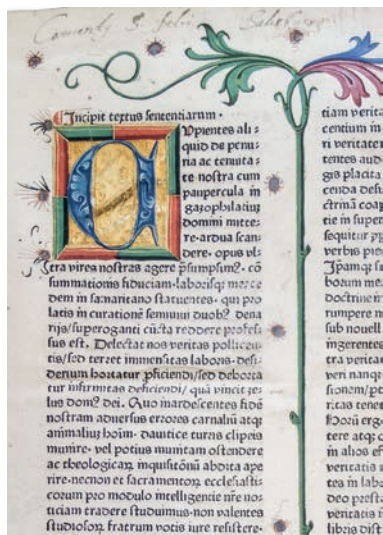 Incipit textus sententiarum.
Upientes ali⸗
quid de penu⸗
ria ac tenuita⸗
te nostra cum
paupercula in
gazophilatiū
domini mitte⸗
re·ardua scan⸗
dere· opus vl⸗
tra vires nostras agere p̄sumpsim⁹· cō
summationis fiduciam·laborisqꝫ merce
dem in samaritano statuentes· qui pro
latis in curationē semiuiui duob⁹ dena
rijs/superoganti cūcta reddere profes⸗
sus est. Delectat nos veritas pollicen⸗
tis/sed terret immensitas laboris· desi⸗
derium hortatur ꝓficiendi/sed dehorta
tur infirmitas deficiendi/ quā vincit ze⸗
lus dom⁹ dei. Quo inardescentes fidē
nostram aduersus errores carnaliū atqꝫ
animaliū hoīm· dauitice turris clipeis
munire· vel potius munitam ostendere
ac theologicaꝝ inquisitōnū abdita ape
rire·necnon et sacramentoꝝ ecclesiasti⸗
corum pro modulo intelligencie nr̄e no⸗
ticiam tradere studuimus·non valentes
studiosoꝝ fratrum votis iure resistere·
tiam verita
centium in
ri veritatem
gis placita
tie in super
sequitur
verbis
doctrine
rumpere
sub nouell
ingerentes
tra veritat
veri nanqꝫ
ritas tene
tere atqꝫ
in alios
veritatis
tes in lab
deo presta
veritatis
libris dist